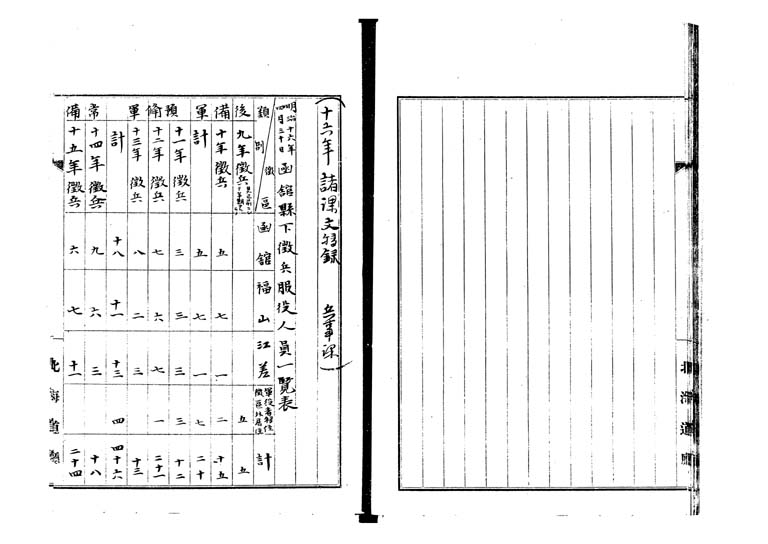 北海道廳
(十六年 諸課文移録 兵事課)
明治十六年四月三十日 函館縣下徴兵服役人員一覧表
類別 徴區 函館 福山 江差 計
後 九年徴兵 五 五
備 十年徴兵 五 七 一 二 十五
軍 計 五 七 一 七 二十
預 十一年徴兵 三 三 三 三 十二
備 十二年徴兵 七 六 七 一 二十一
十三年徴兵 八 二 三 十三
軍 計 十八 十一 十三 四 四十六
常 十四年徴兵 九 六 三 十八
備 十五年徴兵 六 七 十一 二十四
北海道廳